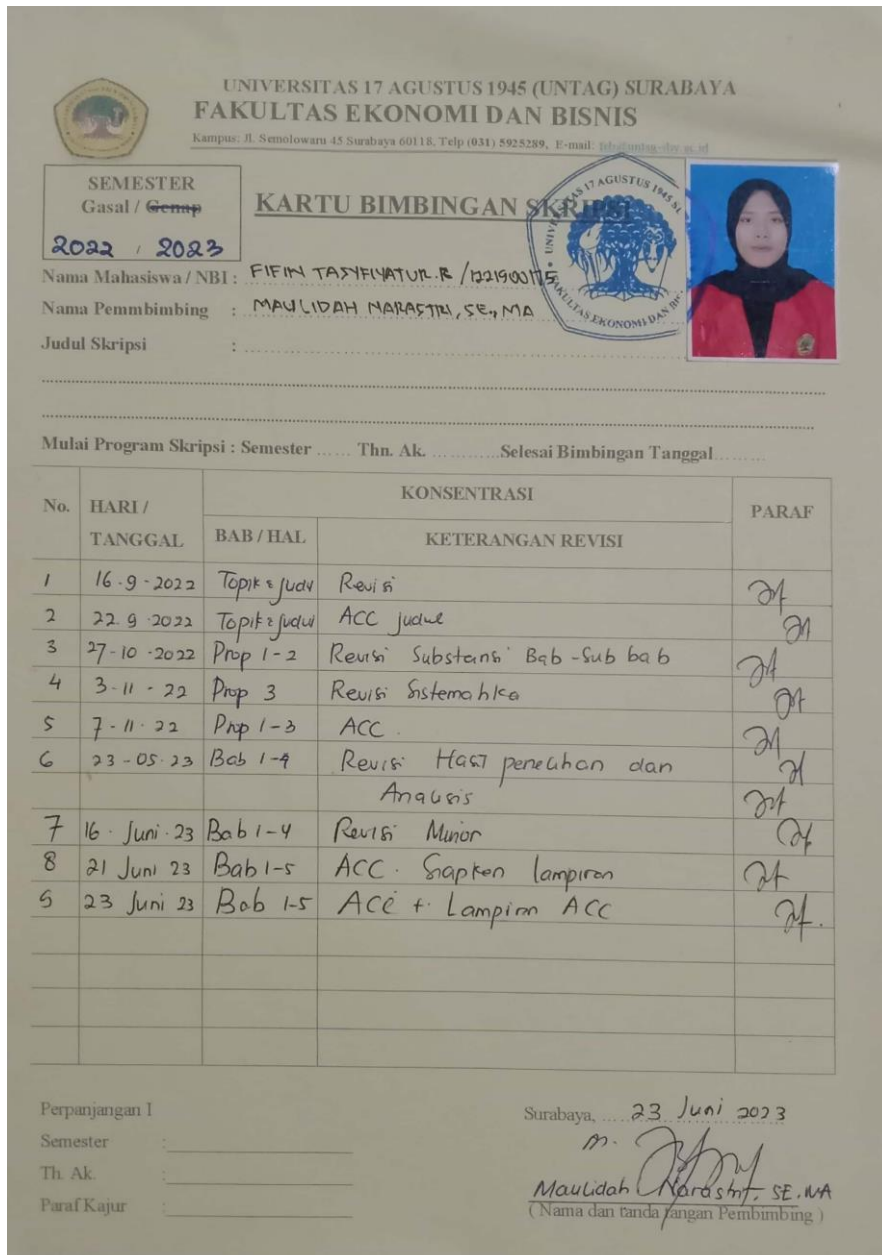 UNIVERSITAS 17 AGUSTUS 1945 (UNTAG) SURABAYA
FAKULTAS EKONOMI DAN BISNIS
Kampus: Jl. Semolowaru 45 Surabaya 60118, Telp (031) 5925289, E-mail:
SEMESTER
Gasal / Genap
2022 / 2023
KARTU BIMBINGAN SKRIPSI
Nama Mahasiswa / NBI : FIFIN TASYFIYATUR.R / 1221900175
Nama Pemmbimbing : MAULIDAH NARASTRI, SE., MA
Judul Skripsi :
Mulai Program Skripsi : Semester ...... Thn. Ak. ............Selesai Bimbingan Tanggal.........
No. HARI / TANGGAL KONSENTRASI PARAF
BAB / HAL KETERANGAN REVISI
1 16-9-2022 Topik & judul Revisi
2 22.9.2022 Topik & judul ACC judul
3 27-10-2022 Prop 1-2 Revisi Substansi Bab-Sub bab
4 3-11-22 Prop 3 Revisi Sistematika
5 7-11-22 Prop 1-3 ACC.
6 23-05-23 Bab 1-4 Revisi Hasil penelitian dan
Analisis
7 16. Juni. 23 Bab 1-4 Revisi Minor
8 21 Juni 23 Bab 1-5 ACC. Siapkan lampiran
9 23 Juni 23 Bab 1-5 ACC + Lampiran ACC
Perpanjangan I
Semester :
Th. Ak. :
Paraf Kajur :
Surabaya, ..... 23 Juni 2023
Maulidah Narastri, SE. MA
( Nama dan tanda tangan Pembimbing )
UNIVERSITAS 17 AGUSTUS 1945
FAKULTAS EKONOMI DAN